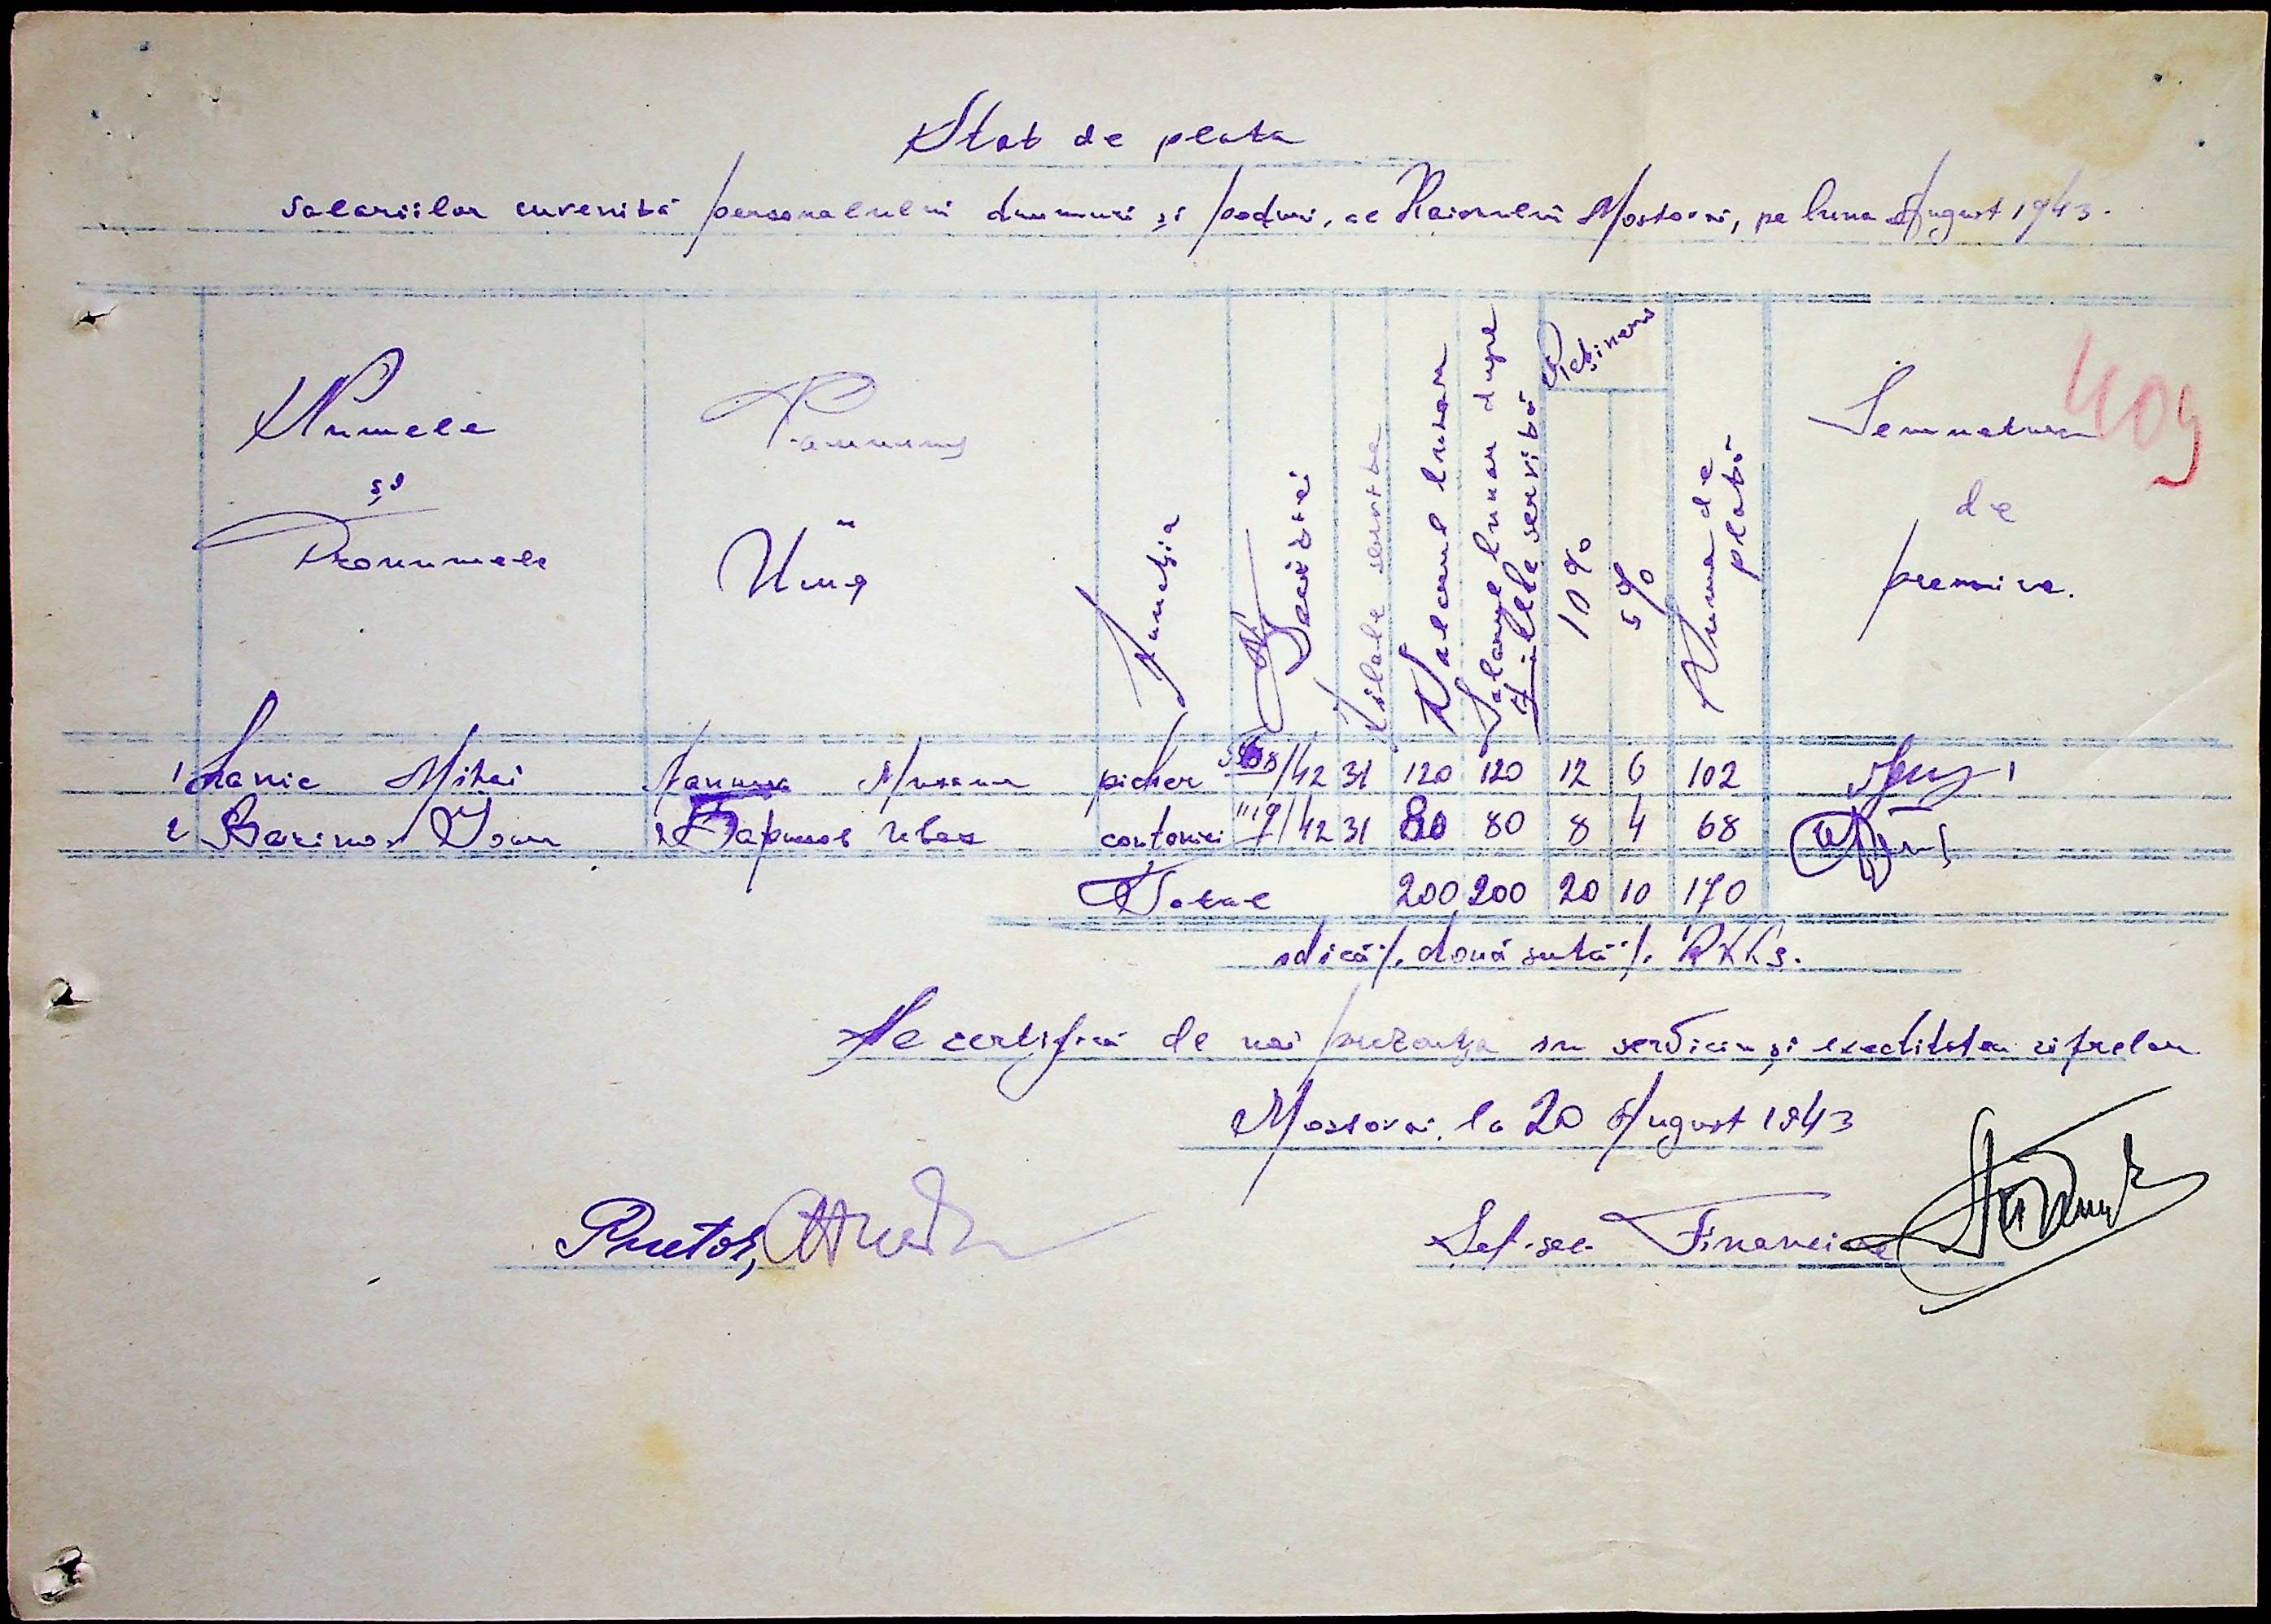 Stat de plata
Salariilor cuvenită personalului drumuri și poduri, al Raionului Mostovoi, pe luna August 1943.
409
Numele și Pronumele
Функция
Deciziei
Zilele servite
Salarul lunar
Salarul lunar după zilele servite
Rețineri
10% 5%
Suma de plată
Semnatura de primire.
1 Lanic Mihai picher /42 31 120 120 12 6 102
2 Barinov Ioan Баринов Иван cantonier /42 31 80 80 8 4 68
Total 200 200 20 10 170
adică /. două sută /. RKKS.
Se certifică de noi prezența în serviciu și exactitatea cifrelor
Mostovoi, la 20 August 1943
Pretor,
Șef-sec. Financiar